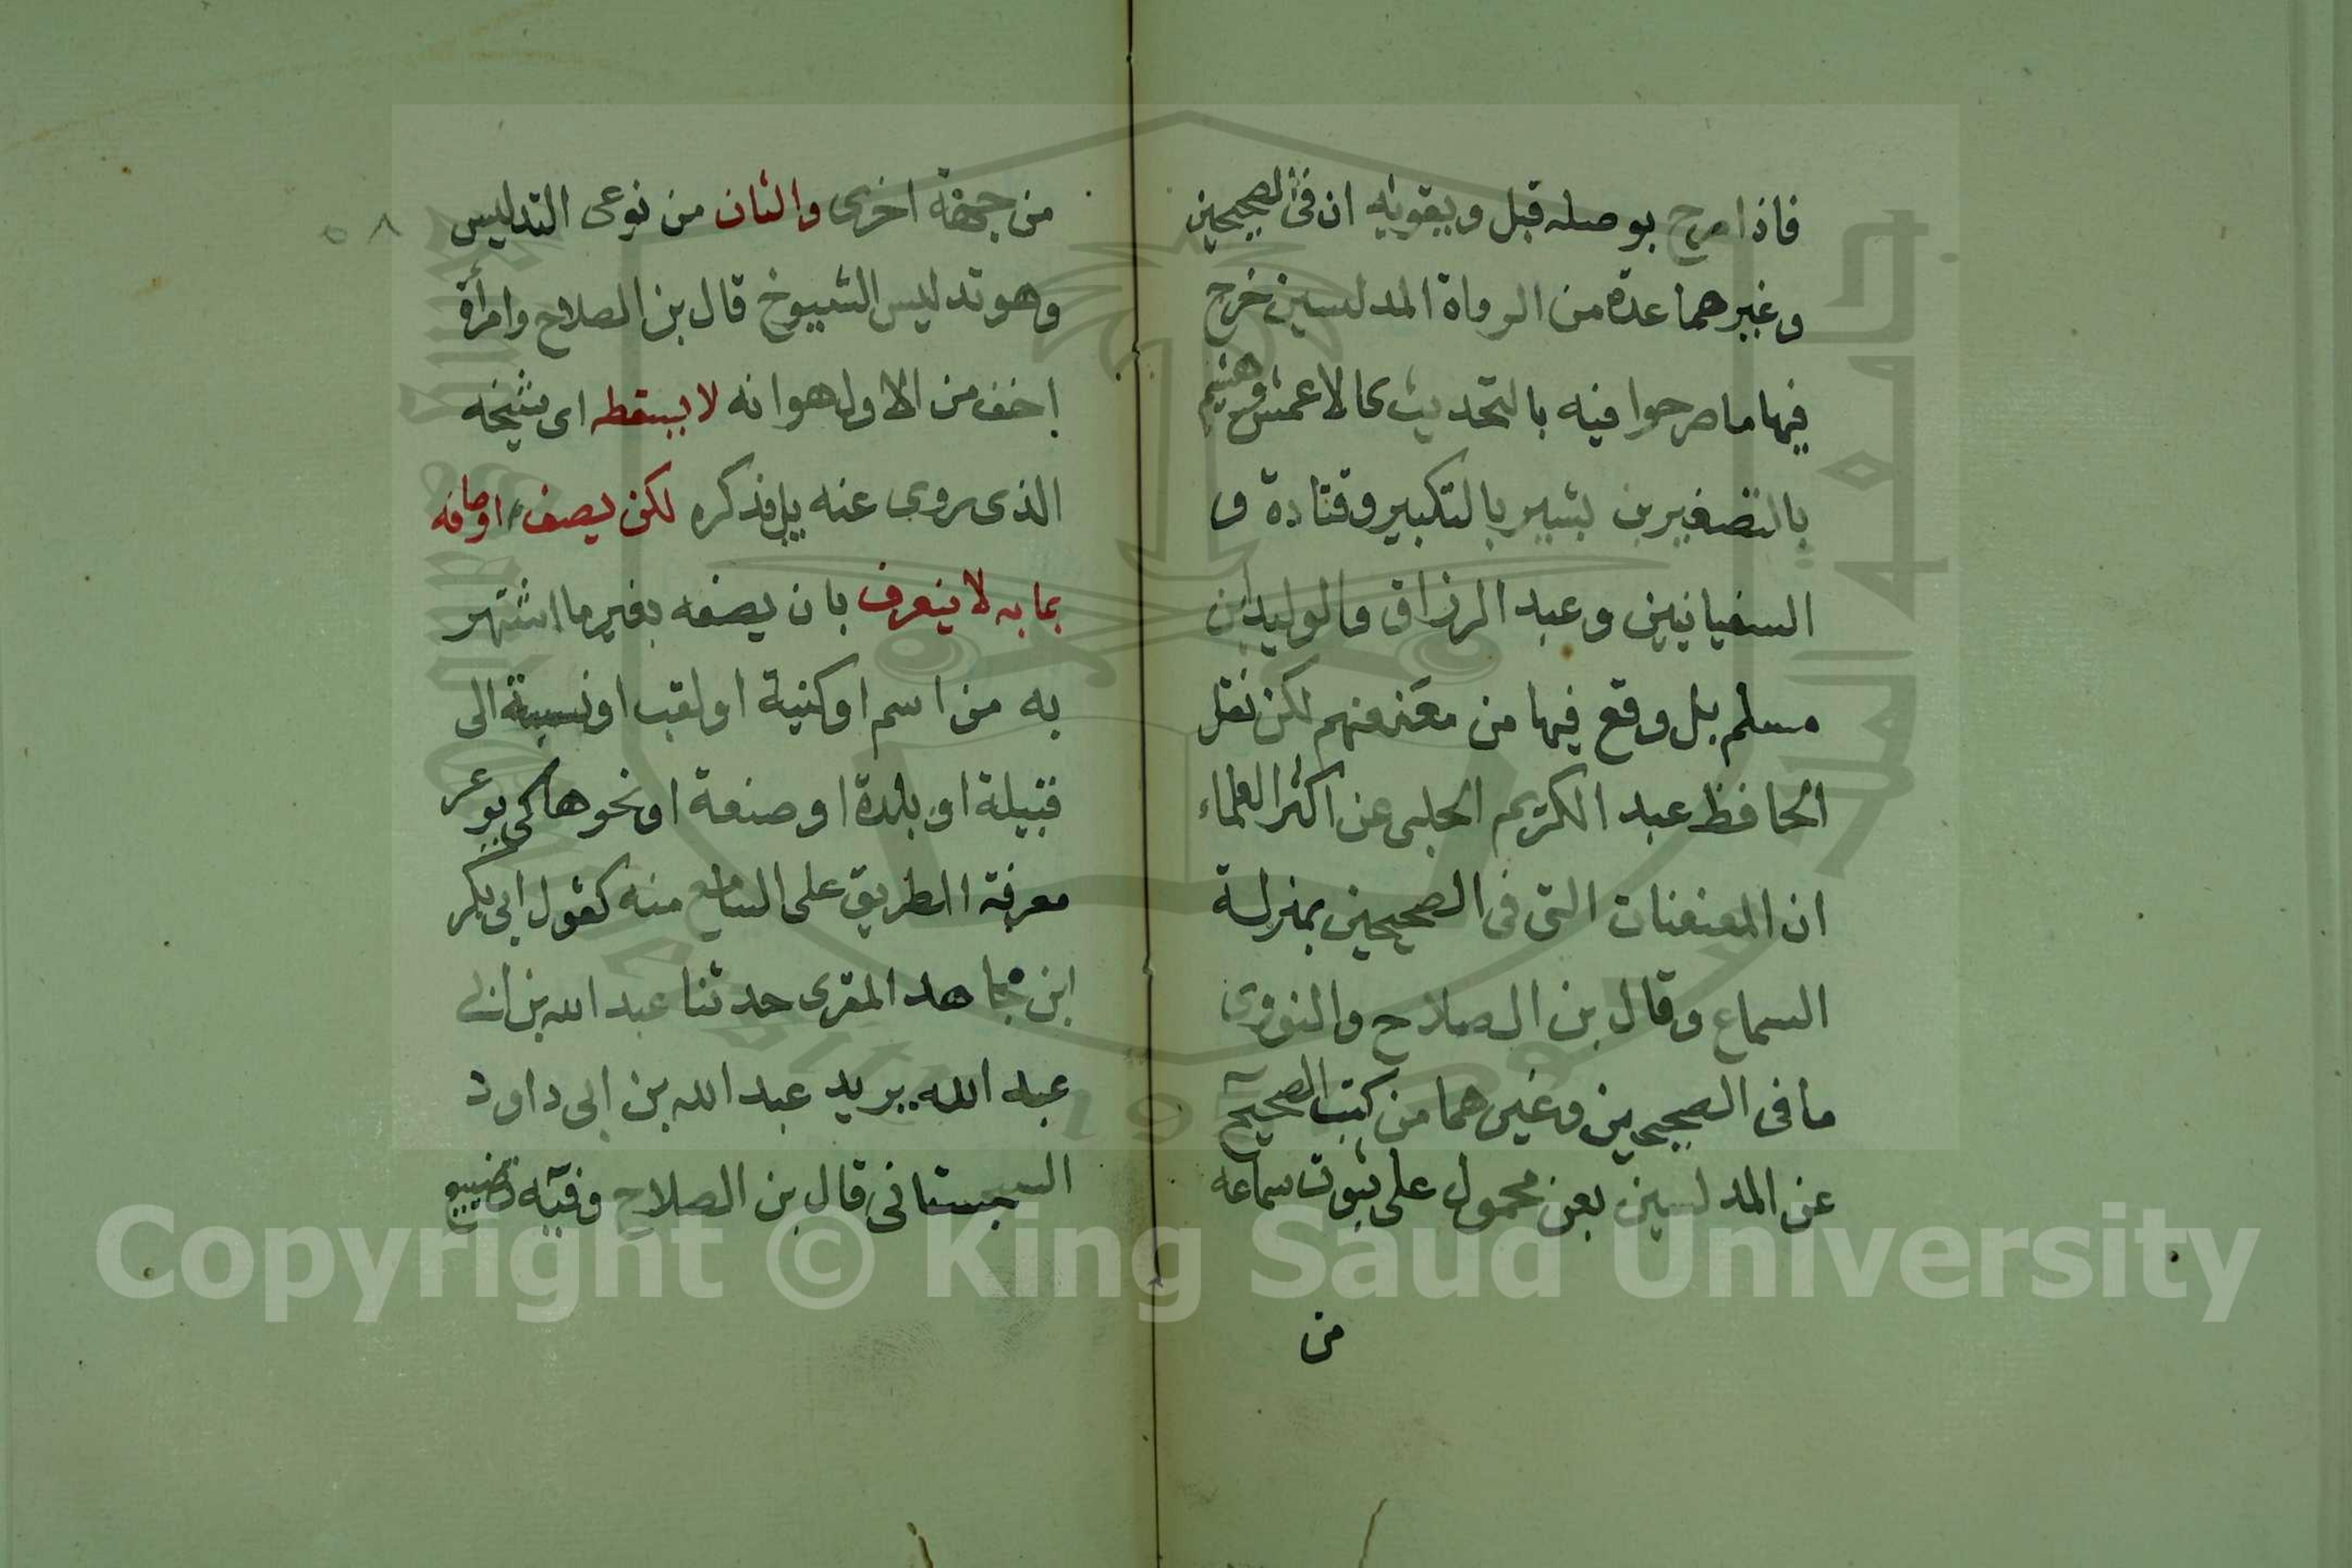 فاذا صرح بوصله قبل ويقويه ان فى الصحيحين
وغيرهما عدة من الرواة المدلسين خرج
فيها ما صرحوا فيه بالتحديث كالاعمش وهشيم
بالتصغير بن بشير بالتكبير وقتادة و
السفيانين وعبد الرزاق والوليد بن
مسلم بل وقع فيها من معنعنهم لكن نقل
الحافظ عبد الكريم الحلبى عن اكثر العلماء
ان المعنعنات التى فى الصحيحين بمنزلة
السماع وقال بن الصلاح والنووى
ما فى الصحيحين وغيرهما من كتب الصحيح
عن المدلسين بعن محمول على ثبوت سماعه
من
من جهة اخرى والثان من نوعى التدليس
وهو تدليس الشيوخ قال بن الصلاح وامرأة
اخف من الاول هو انه لا يسقطه اى شيخه
الذى يروى عنه بل يذكره لكن يصف اوصافه
بما به لا ينعرف بان يصفه بغير ما اشتهر
به من اسم او كنية او لقب او نسبة الى
قبيلة او بلدة او صنعة او نحوها كى يوعر
معرفة الطريق على السامع منه كقول ابى بكر
ابن مجاهد المقرى حدثنا عبد الله بن ابى
عبد الله يريد عبد الله بن ابى داود
السجستانى قال بن الصلاح وفيه تضييع
٥٨
جامعة الملك سعود
King Saud University
1957
Copyright © King Saud University